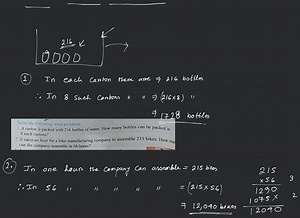 216
① In each Canton there are ⇒ 216 bottles
∴ In 8 such Cartons " " ⇒ (216×8) "
⇒ 1728 bottles
Solve the following word problems.
1. A carton is packed with 216 bottles of water. How many bottles can be packed in
8 such cartons?
2. It takes an hour for a bike manufacturing company to assemble 215 bikes. How many
can the company assemble in 56 hours?
2. In one hour the Company Can assemble = 215 bikes
∴ In 56 " " " " " = (215×56)
⇒ 12,040 bikes
215
×56
1290
1075×
12040
3
2